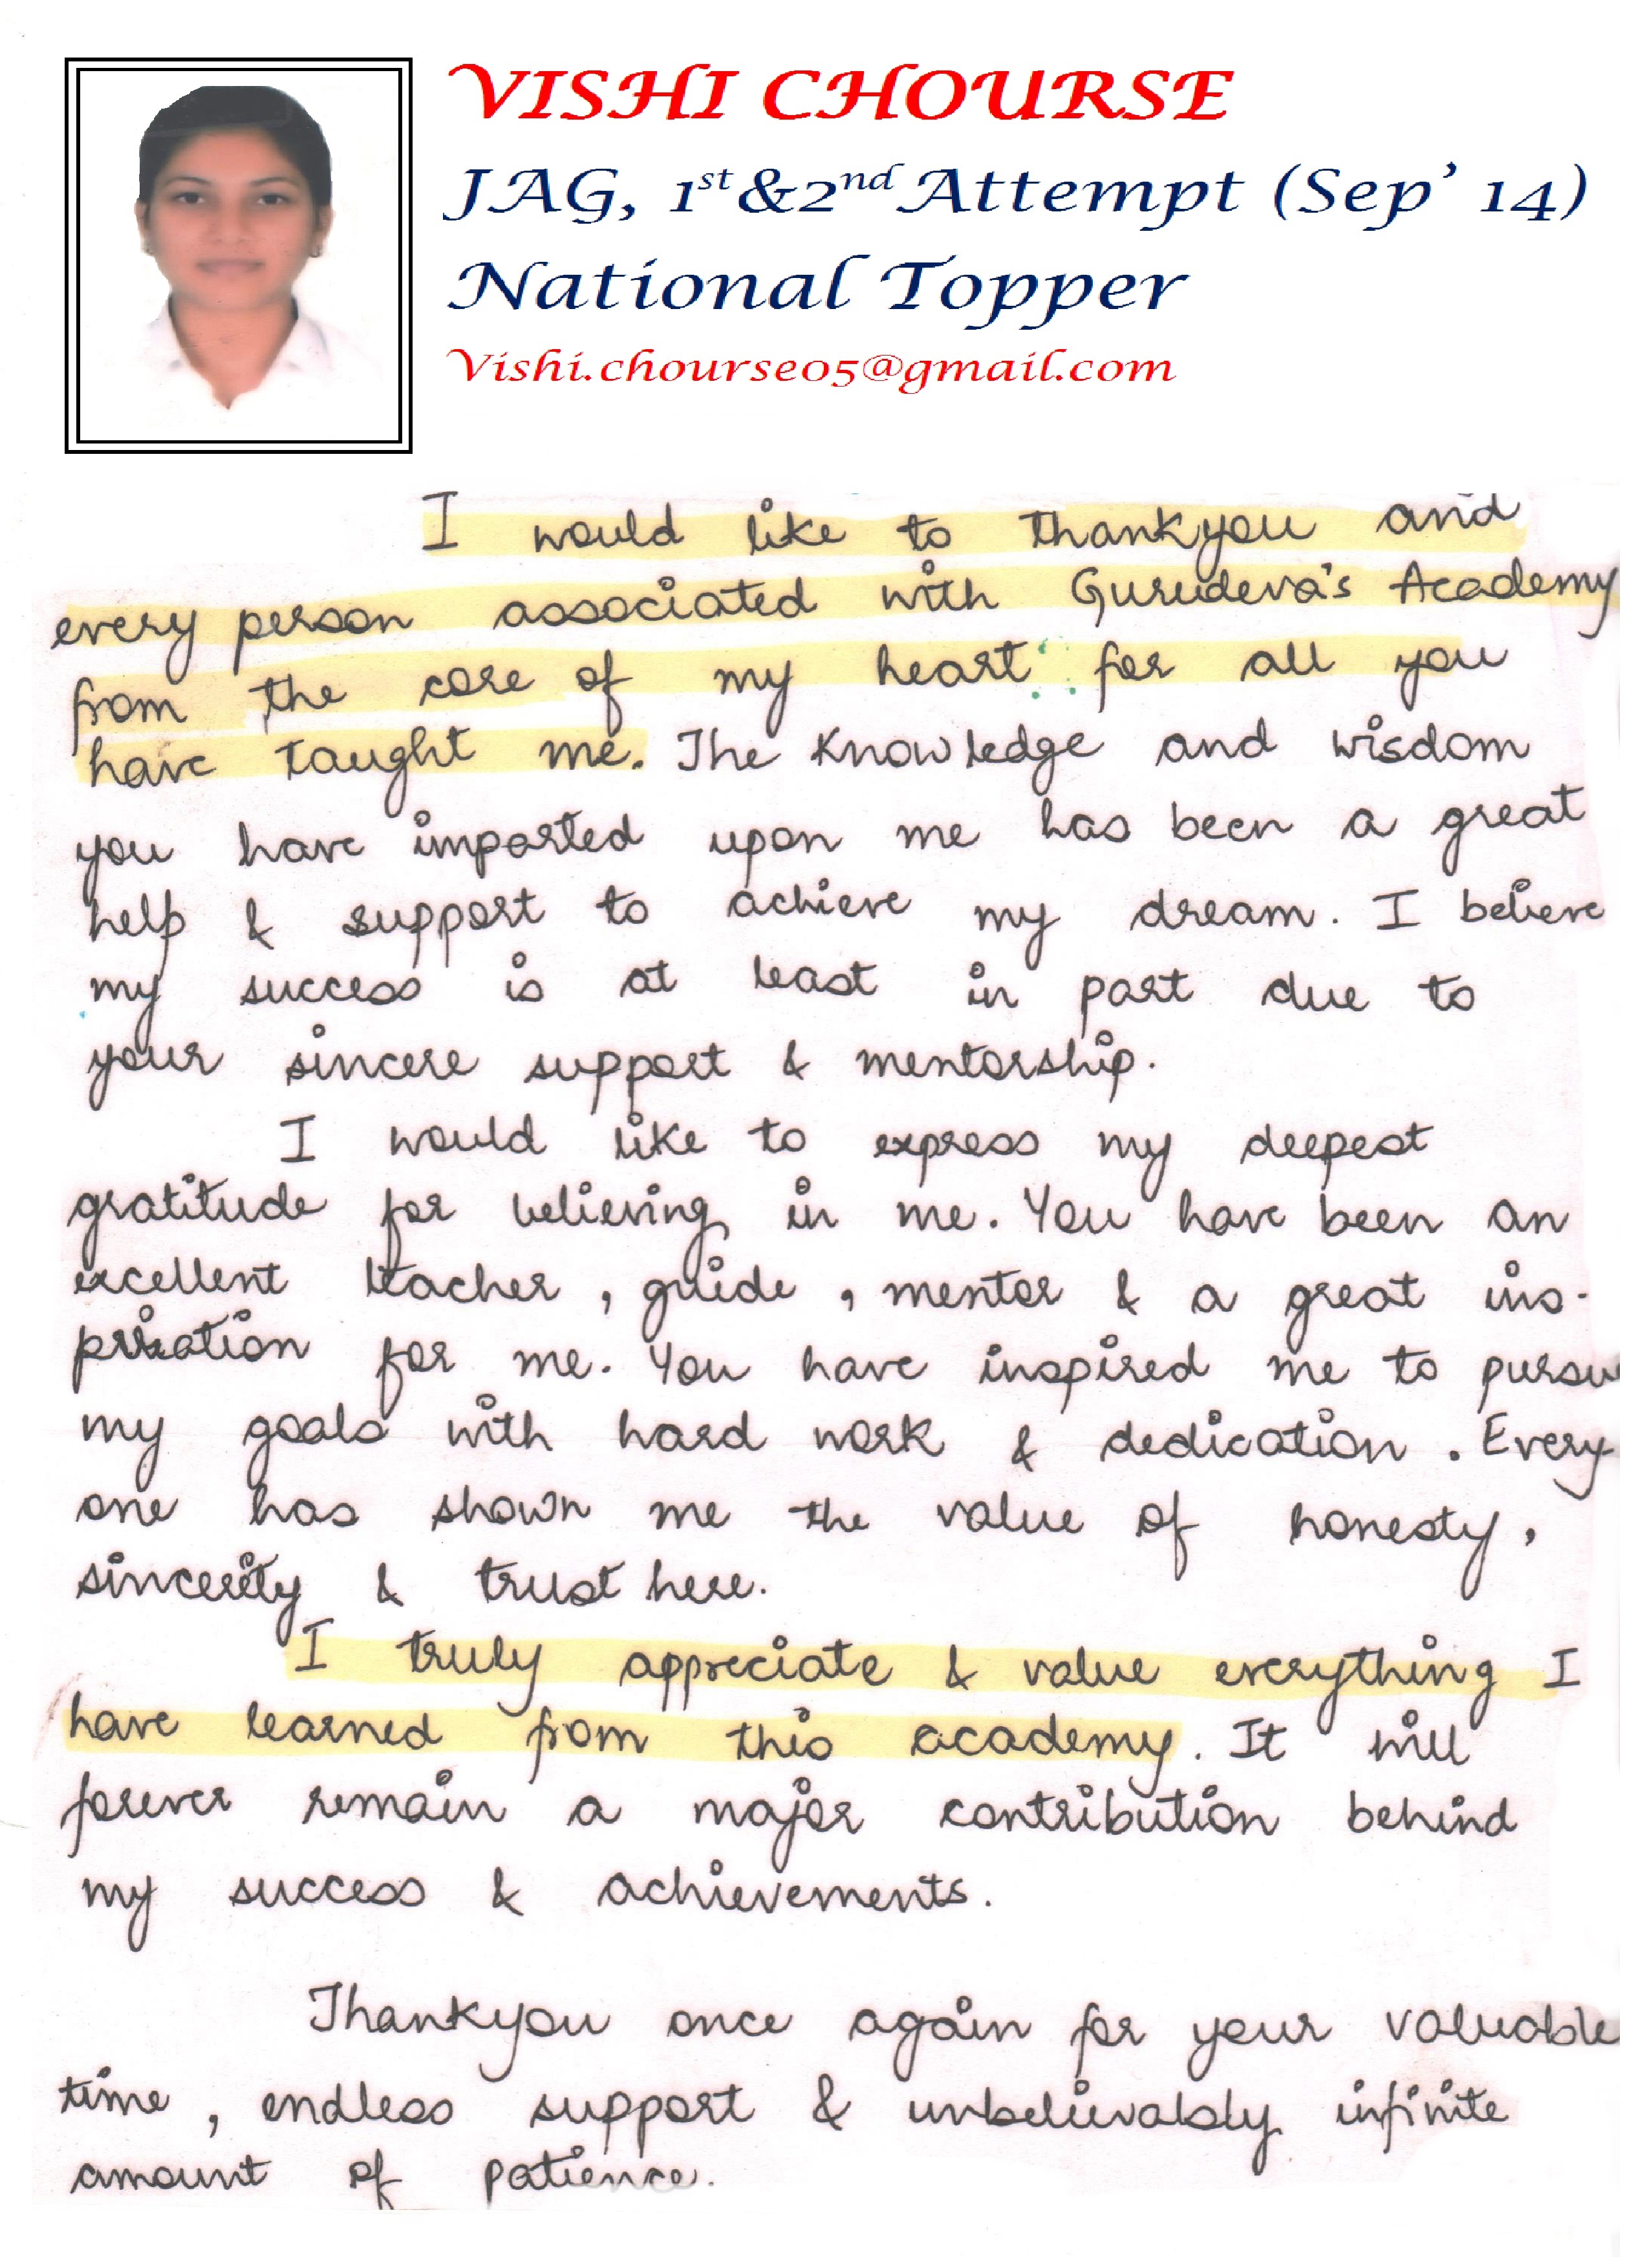 VISHI CHOURSE
JAG, 1st&2nd Attempt (Sep' 14)
National Topper
Vishi.chourse05@gmail.com
I would like to thankyou and
every person associated with Gurudeva's Academy
from the core of my heart for all you
have taught me. The knowledge and wisdom
you have imparted upon me has been a great
help & support to achieve my dream. I believe
my success is at least in part due to
your sincere support & mentorship.
I would like to express my deepest
gratitude for believing in me. You have been an
excellent teacher, guide, mentor & a great ins-
piration for me. You have inspired me to pursu
my goals with hard work & dedication. Every
one has shown me the value of honesty,
sincerity & trust here.
I truly appreciate & value everything I
have learned from this academy. It will
forever remain a major contribution behind
my success & achievements.
Thankyou once again for your valuable
time, endless support & unbelievably infinite
amount of patience.